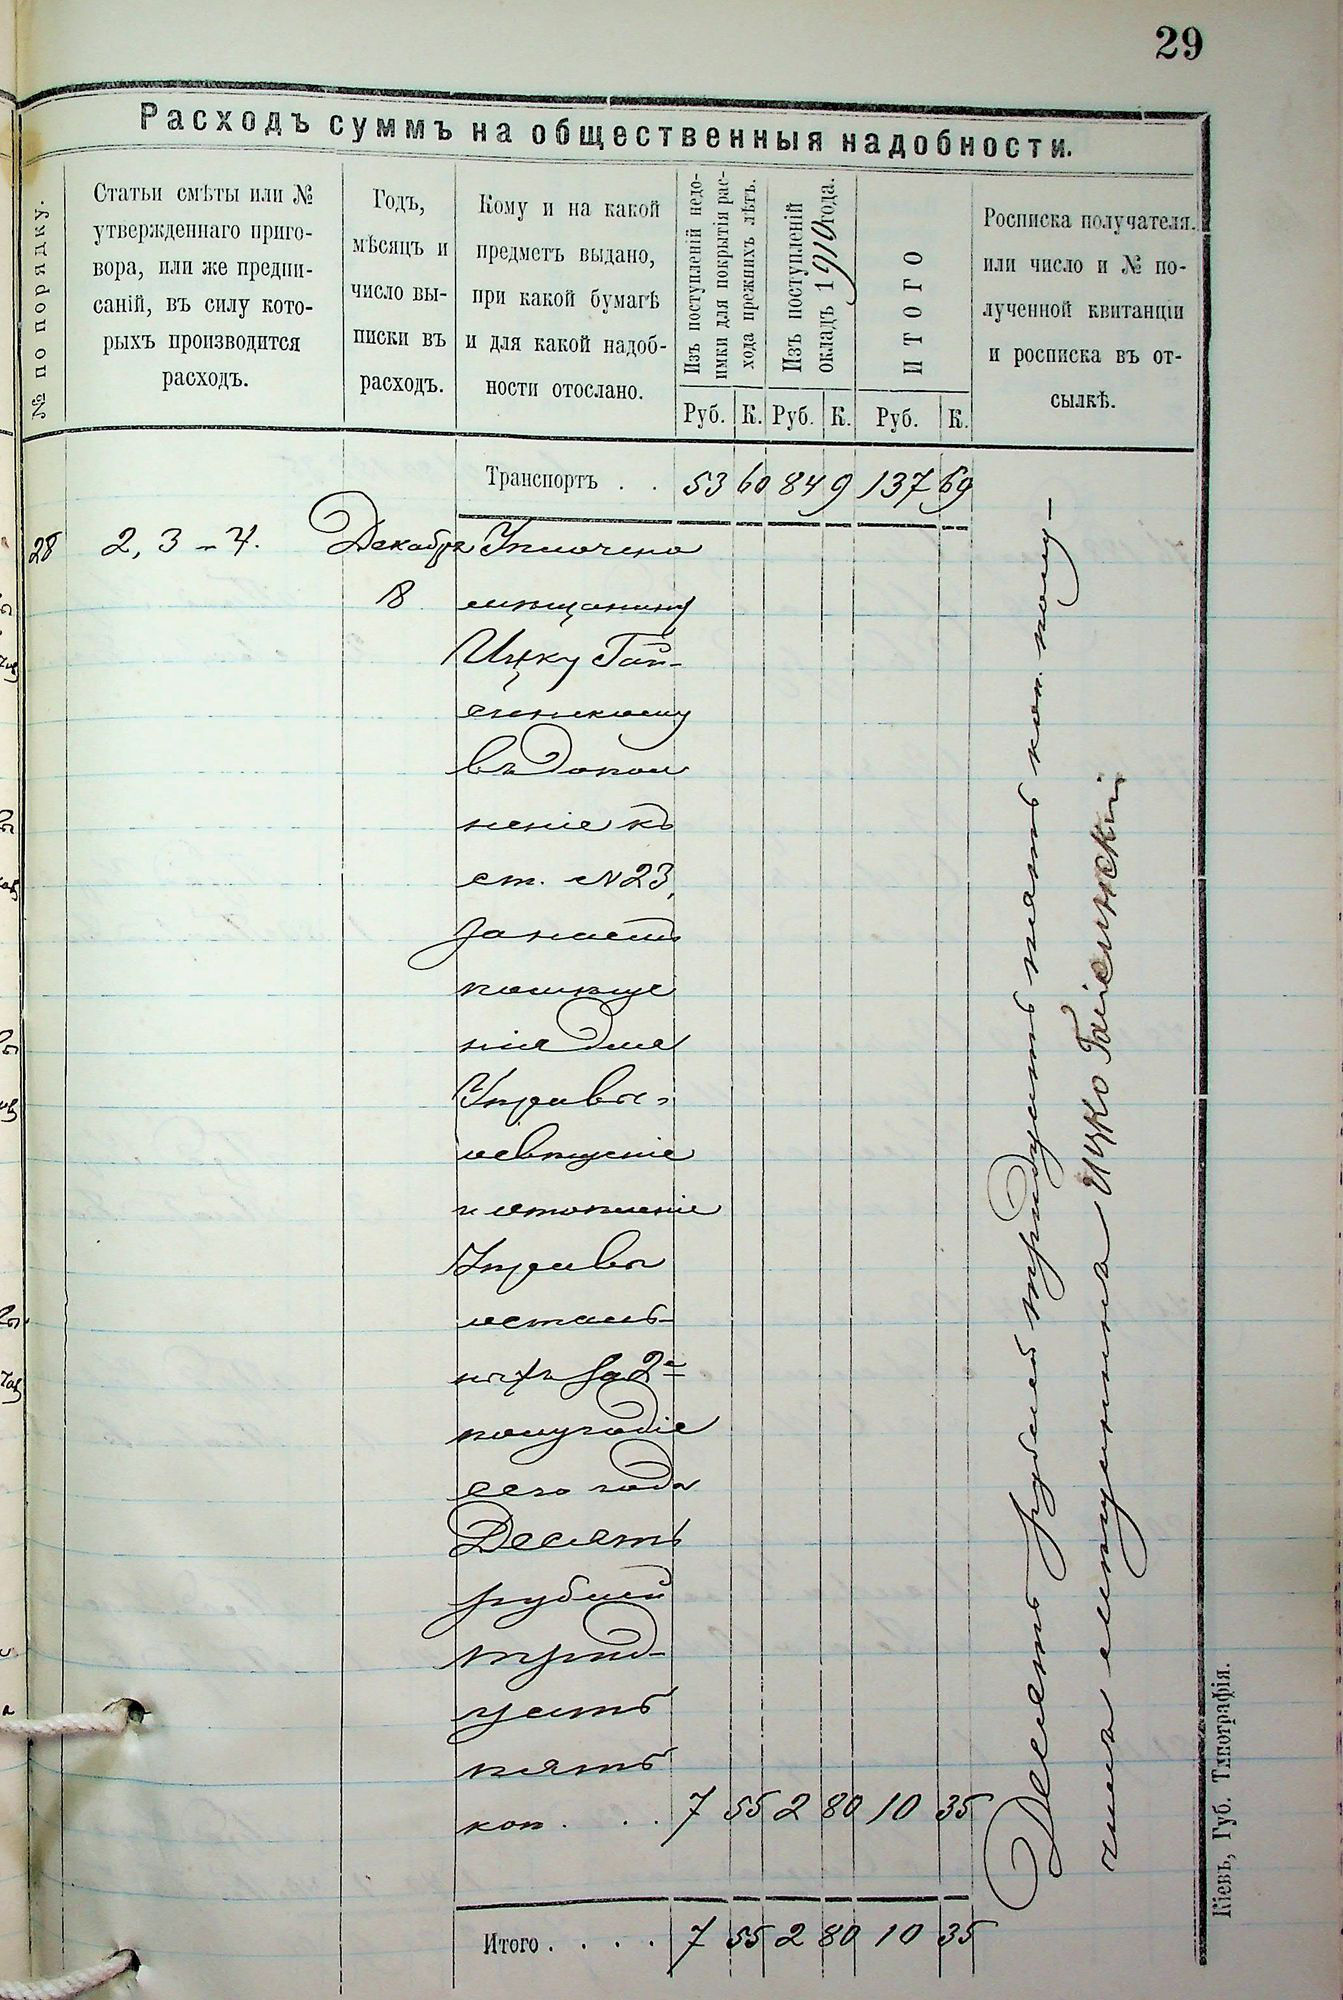 29
Расходъ суммъ на общественныя надобности.
№ по порядку.
Статьи смѣты или №
утвержденнаго приго-
вора, или же предпи-
саній, въ силу кото-
рыхъ производится
расходъ.
Годъ,
мѣсяцъ и
число вы-
писки въ
расходъ.
Кому и на какой
предметъ выдано,
при какой бумагѣ
и для какой надоб-
ности отослано.
Изъ поступленій недо-
имки для покрытія рас-
хода прежнихъ лѣтъ.
Изъ поступленій
окладъ 1910 года.
ИТОГО
Росписка получателя.
или число и № по-
лученной квитанціи
и росписка въ от-
сылкѣ.
Руб. К. Руб. К. Руб. К.
Транспортъ . . 53 60 84 9 137 69
28 2, 3 - 4. Декабря Уплочено
8 мѣщанину
Ицку Гай-
сенскому
въ допол
неніе къ
ст. №23,
за наемъ
помѣще
нія для
Управы,
освѣщеніе
и отопленіе
Управы
осталь-
ныхъ за 2е
полугодіе
сего года
Десять
рублей
трид-
цать
пять
коп. . . 7 55 2 80 10 35
Итого . . . . 7 55 2 80 10 35
Десять рублей тридцать пять коп. полу-
чилъ мѣщанинъ Ицко Гайсенскій
Кіевъ, Губ. Типографія.